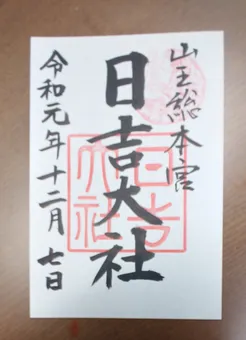 山王総本宮
日吉大社
日吉大社
令和元年十二月七日